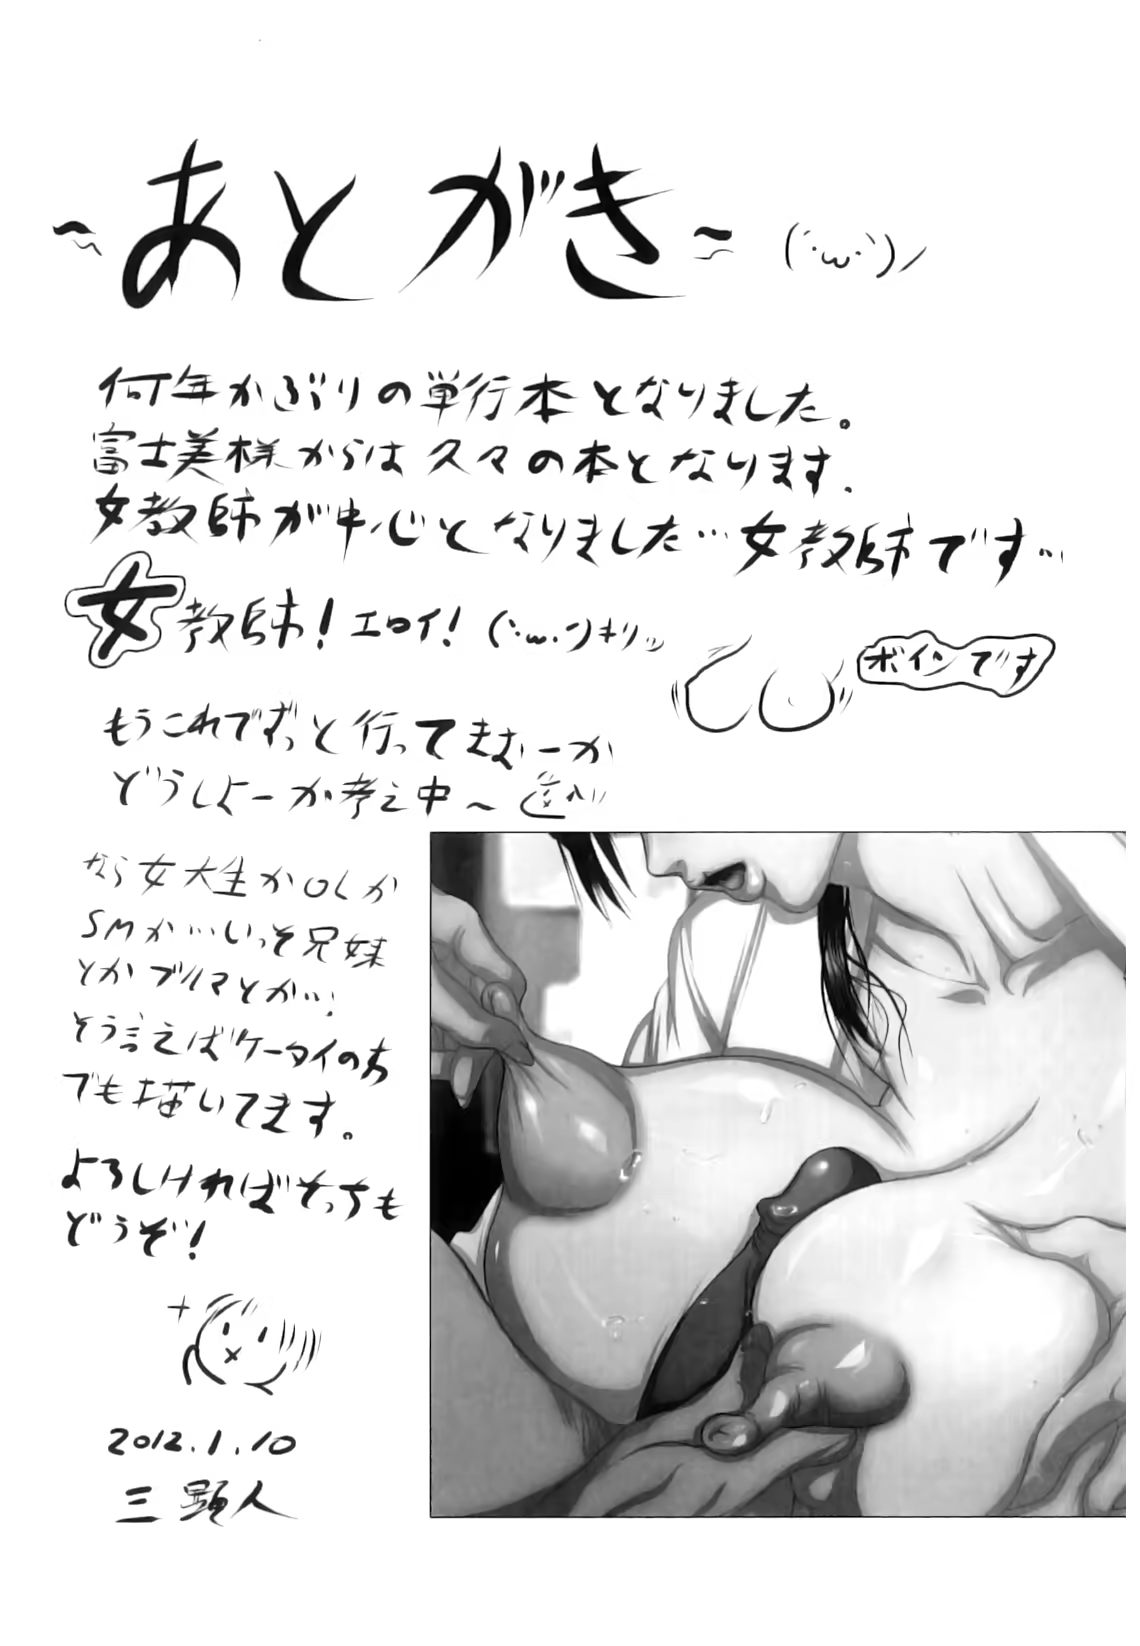 ~あとがき~ (´･ω･`)ノ
何年かぶりの単行本となりました。
富士美様からは久々の本となります。
女教師が中心となりました…女教師です…
女教師!エロイ!(`･ω･´)キリッ
ボインです
もうこれでずっと行ってきむーか
どうしよーか考え中～
なら女大生かOLか
SMか…いっそ兄妹
とかブルマとか…!
そう言えばケータイの方
でも描いてます。
よろしければそっちも
どうぞ!
2012.1.10
三顕人